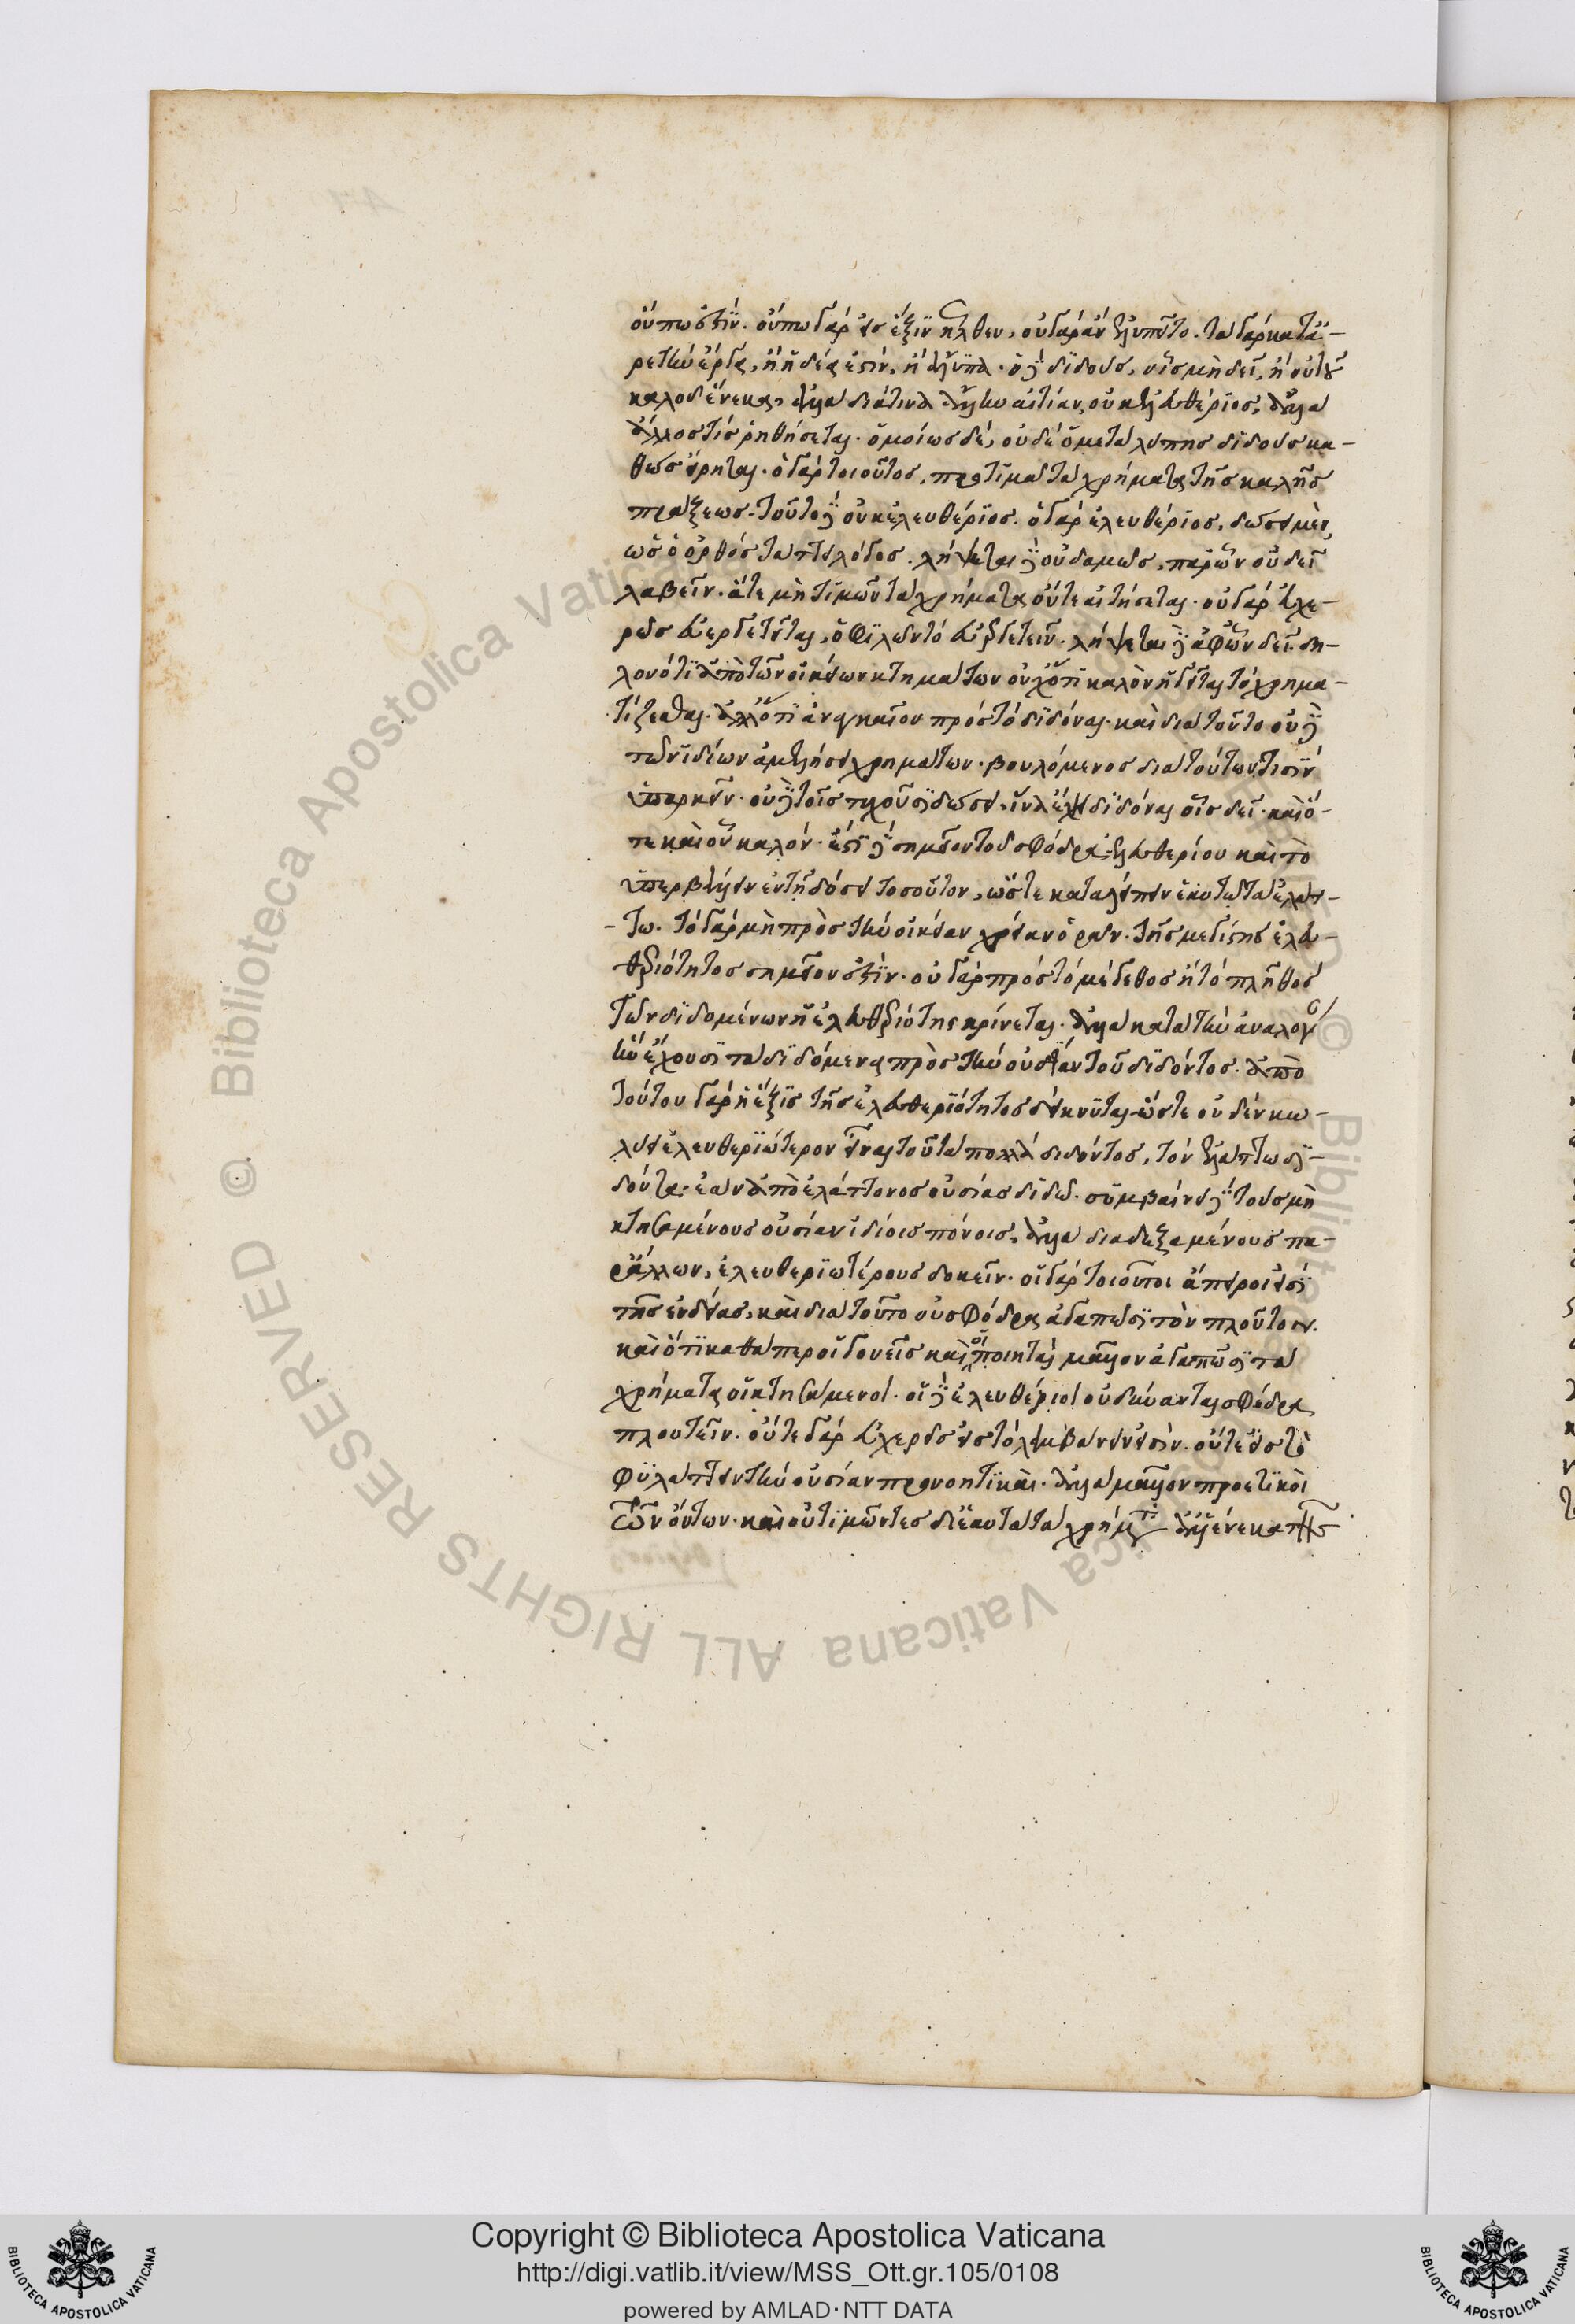 οὔπω ἐστὶν. οὔπω γὰρ εἰς ἕξιν ἦλθεν, οὐ γὰρ ἂν ἐλυπεῖτο. τὰ γὰρ κατ' ἀ-
ρετὴν ἔργα, ἢ ἡδέα ἐστὶν, ἢ ἄλυπα. ὁ δὲ διδοὺς, οἷς μὴ δεῖ, ἢ οὐ τοῦ
καλοῦ ἕνεκα, ἀλλὰ διά τινα ἄλλην αἰτίαν, οὐκ ἐλευθέριος, ἀλλὰ
ἄλλος τίς ῥηθήσεται. ὁμοίως δὲ, οὐδὲ ὁ μετὰ λύπης διδοὺς κα-
θὼς εἴρηται. ὁ γὰρ τοιοῦτος, προτιμᾶ τὰ χρήματα τῆς καλῆς
πράξεως. τοῦτο δὲ οὐκ ἐλευθέριος. ὁ γὰρ ἐλευθέριος, δώσει μὲν,
ὡς ὁ ὀρθὸς τάττει λόγος. λήψεται δὲ οὐδαμῶς, παρ' ὧν οὐ δεῖ
λαβεῖν. ἅτε μὴ τιμῶν τὰ χρήματα οὔτε αἰτήσεται. οὐ γὰρ εὐχε-
ρῶς εὐεργετεῖται, ὁ φιλῶν τὸ εὐεργετεῖν. λήψεται δὲ ἀφ' ὧν δεῖ. δη-
λονότι ἀπὸ τῶν οἰκείων κτημάτων οὐχ ὅτι καλὸν ἡγεῖται τὸ χρημα-
τίζεσθαι. ἀλλ' ὅτι ἀναγκαῖον πρὸς τὸ διδόναι. καὶ διὰ τοῦτο οὐδὲ
τῶν ἰδίων ἀμελήσει χρημάτων. βουλόμενος διὰ τούτων τισὶν
ἐπαρκεῖν. οὐδὲ τοῖς τυχοῦσι δώσει, ἵνα ἔχῃ διδόναι οἷς δεῖ. καὶ ὅ-
τε καὶ οὗ καλόν. ἔστι δὲ σημεῖον τοῦ σφόδρα ἐλευθερίου καὶ τὸ
ὑπερβάλλειν ἐν τῇ δόσει τοσοῦτον, ὥστε καταλείπειν ἑαυτῷ τὰ ἐλάτ-
τω. τὸ γὰρ μὴ πρὸς τὴν οἰκείαν χρείαν ὁρᾶν. τῆς μεγίστης ἐλευ-
θεριότητος σημεῖον ἐστὶν. οὐ γὰρ πρὸς τὸ μέγεθος ἢ τὸ πλῆθος
τῶν διδομένων ἡ ἐλευθεριότης κρίνεται. ἀλλὰ κατὰ τὴν ἀναλογί
ἣν ἔχουσι τὰ διδόμενα πρὸς τὴν οὐσίαν τοῦ διδόντος. ἀπὸ
τούτου γὰρ ἡ ἕξις τῆς ἐλευθεριότητος δείκνυται. ὥστε οὐδὲν κω-
λύει ἐλευθεριώτερον εἶναι τοῦ τὰ πολλὰ διδόντος, τὸν ἐλάττω δι-
δόντα. ἐὰν ἀπὸ ἐλάττονος οὐσίας διδῷ. συμβαίνει δὲ τοὺς μὴ
κτησαμένους οὐσίαν ἰδίοις πόνοις, ἀλλὰ διαδεξαμένους πα-
ρ' ἄλλων, ἐλευθεριωτέρους δοκεῖν. οἱ γὰρ τοιοῦτοι ἄπειροί εἰσι
τῆς ἐνδείας, καὶ διὰ τοῦτο οὐ σφόδρα ἀγαπῶσι τὸν πλοῦτον.
καὶ ὅτι καθάπερ οἱ γονεῖς καὶ οἱ ποιηταὶ μᾶλλον ἀγαπῶσι τὰ
χρήματα οἱ κτησάμενοι. οἱ δὲ ἐλευθέριοι οὐ δύνανται σφόδρα
πλουτεῖν. οὔτε γὰρ εὐχερεῖς εἰς τὸ λαμβάνειν εἰσὶν. οὔτε εἰς τὸ
φυλάττειν τὴν οὐσίαν προνοητικοὶ. ἀλλὰ μᾶλλον προετικοὶ
τῶν ὄντων. καὶ οὐ τιμῶντες δι' ἑαυτὰ τὰ χρήματα ἀλλ' ἕνεκα τῆς